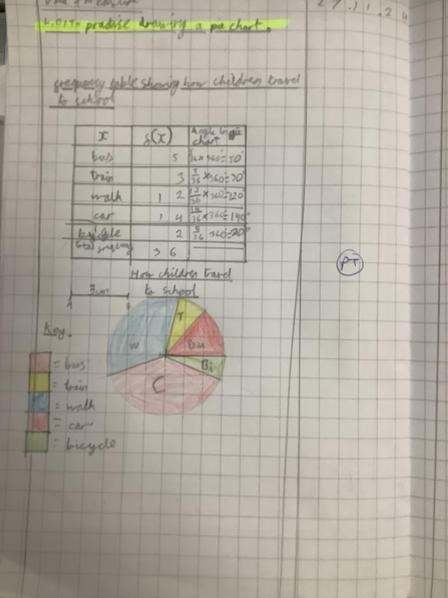 L.O: To practise drawing a pie chart.
frequency table showing how children travel
to school
x f(x) Angle in pie chart
bus 5 5/36 x 360 = 50°
train 3 3/36 x 360 = 30°
walk 12 12/36 x 360 = 120°
car 14 14/36 x 360 = 140°
bicycle 2 2/36 360 = 20°
total frequency 36
How children travel
to school
3cm
T
W
Bu
Bi
C
Key.
= bus
= train
= walk
= car
= bicycle
PT